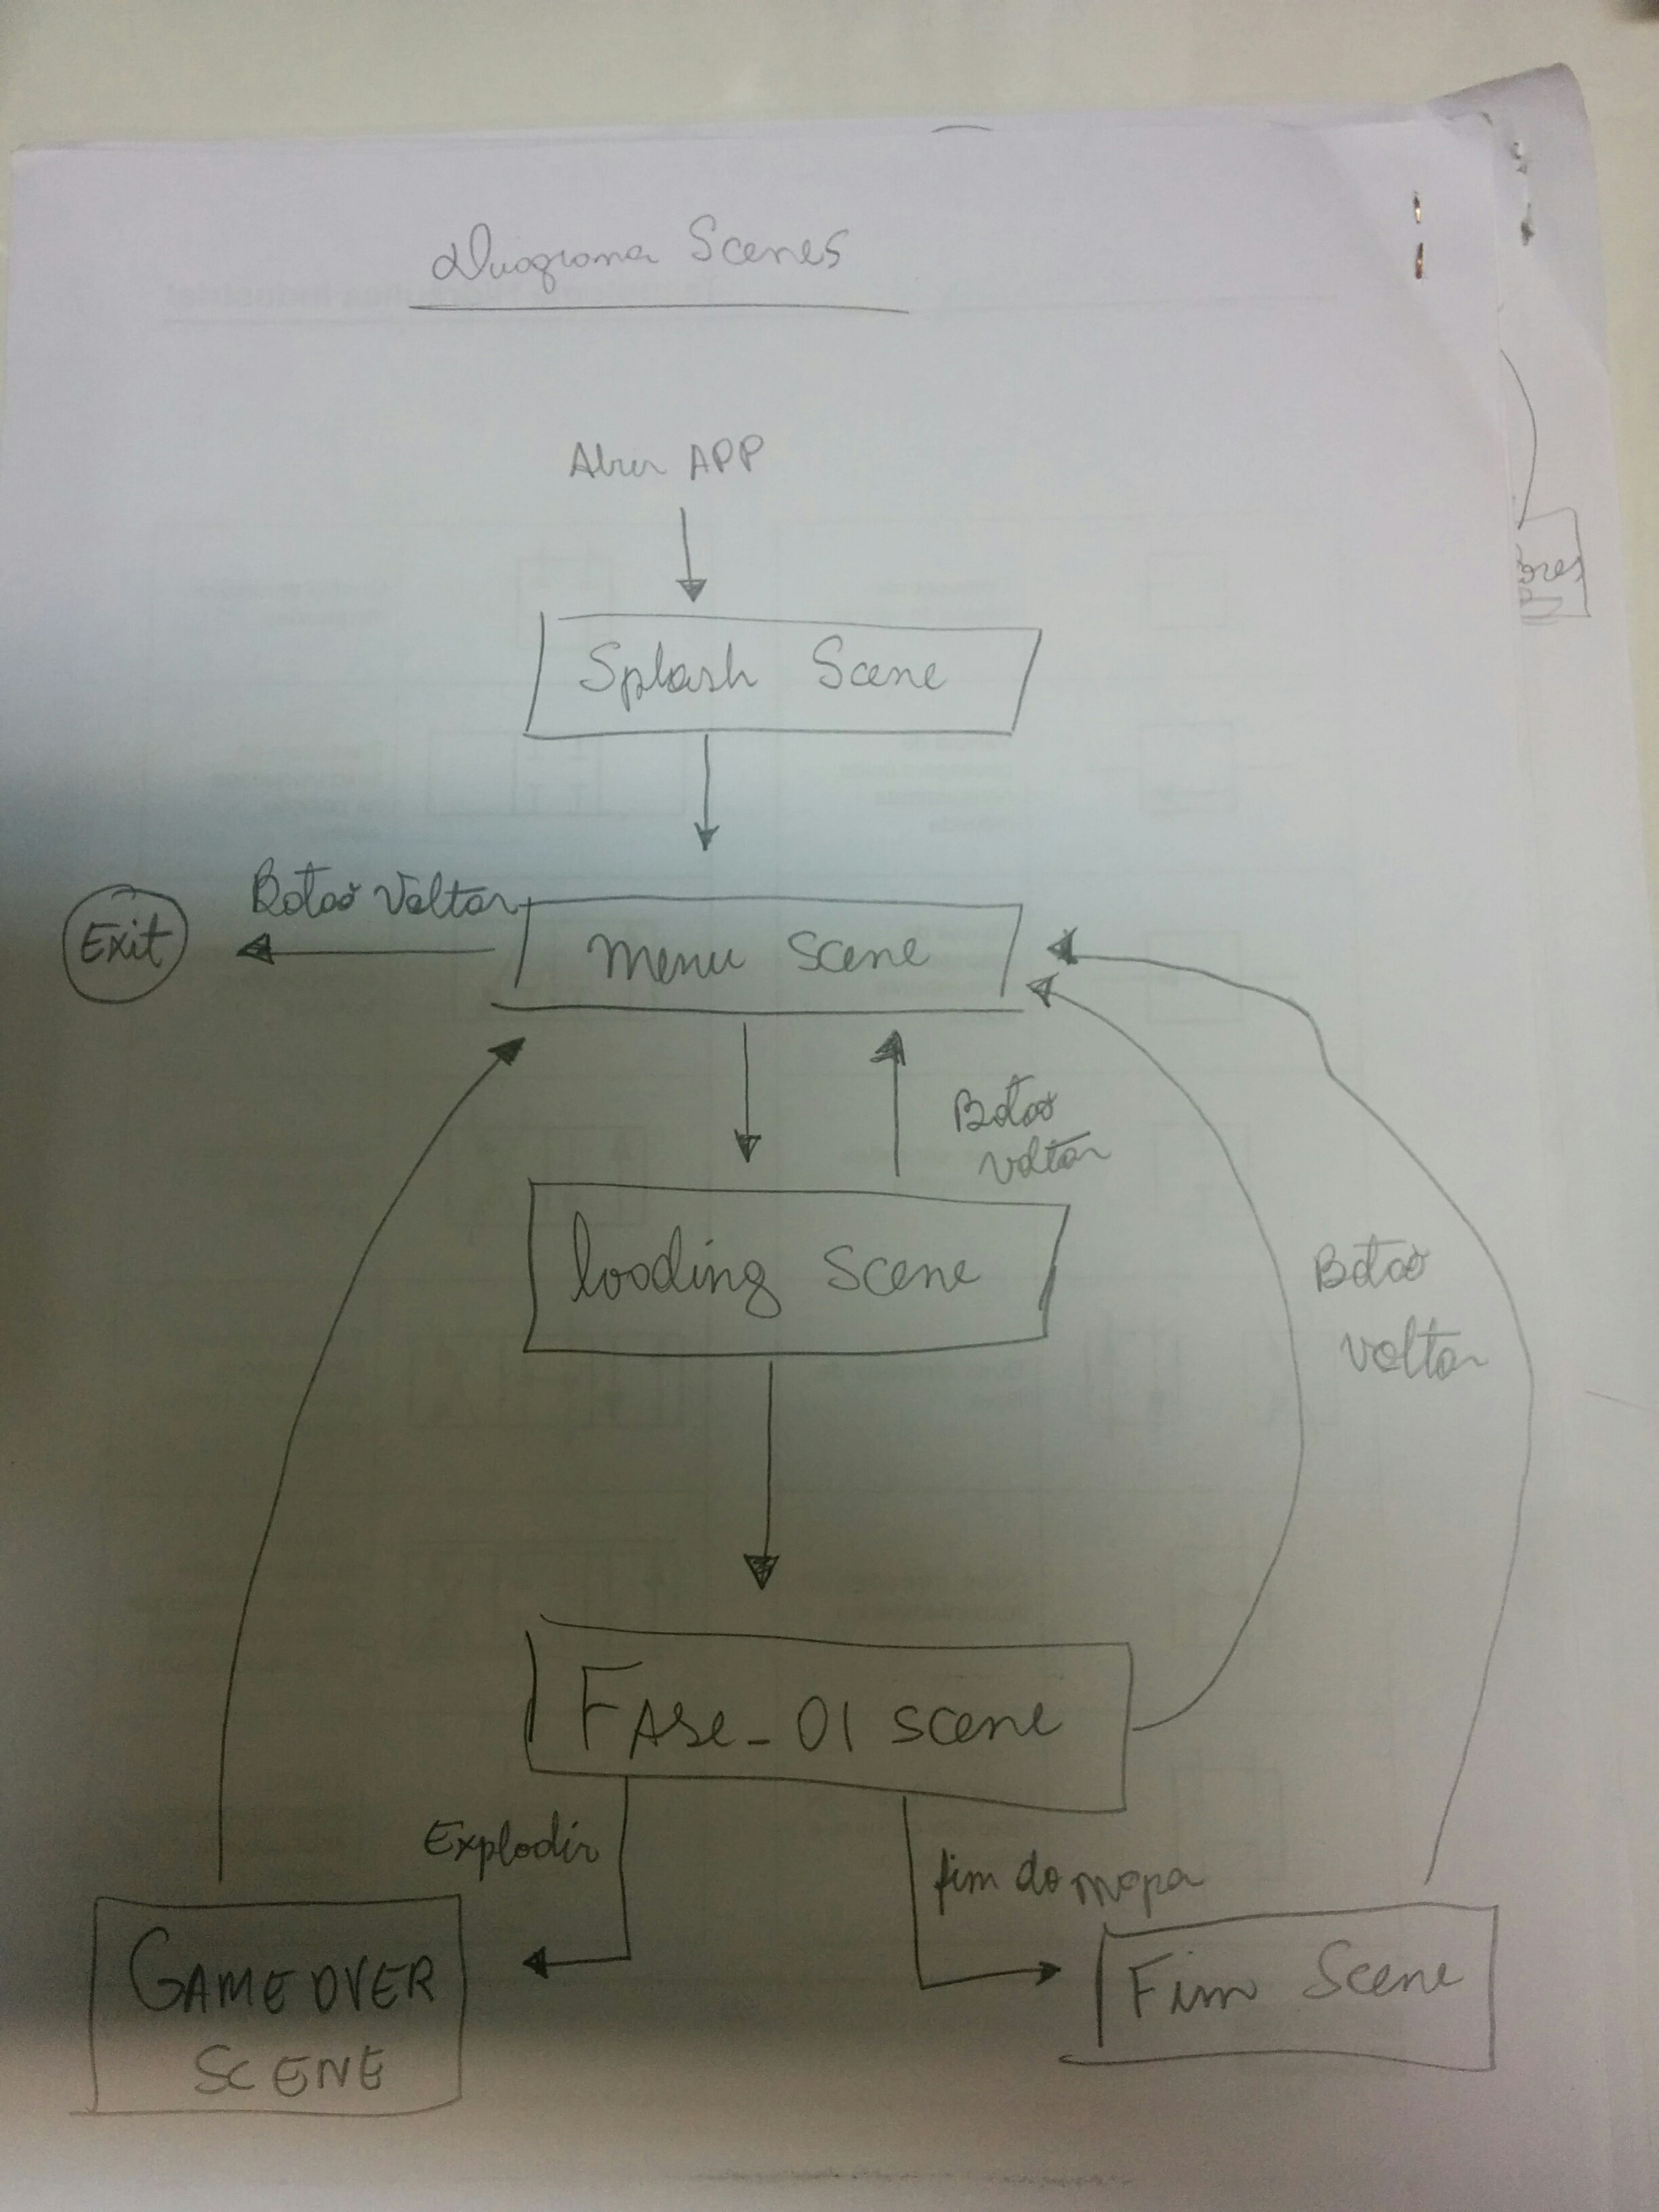 Diagrama Scenes
Abrir APP
Splash Scene
Botao Voltar
Exit
menu scene
Botao
voltar
loading scene
Botao
voltar
FAse_01 scene
Explodir
fim do mapa
GAMEOVER
SCENE
Fim Scene